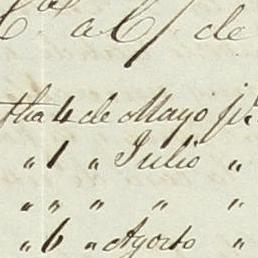 a C/ de
fha 4 de Mayo
" 1 " Julio "
" " " " "
" 6 " Agosto "